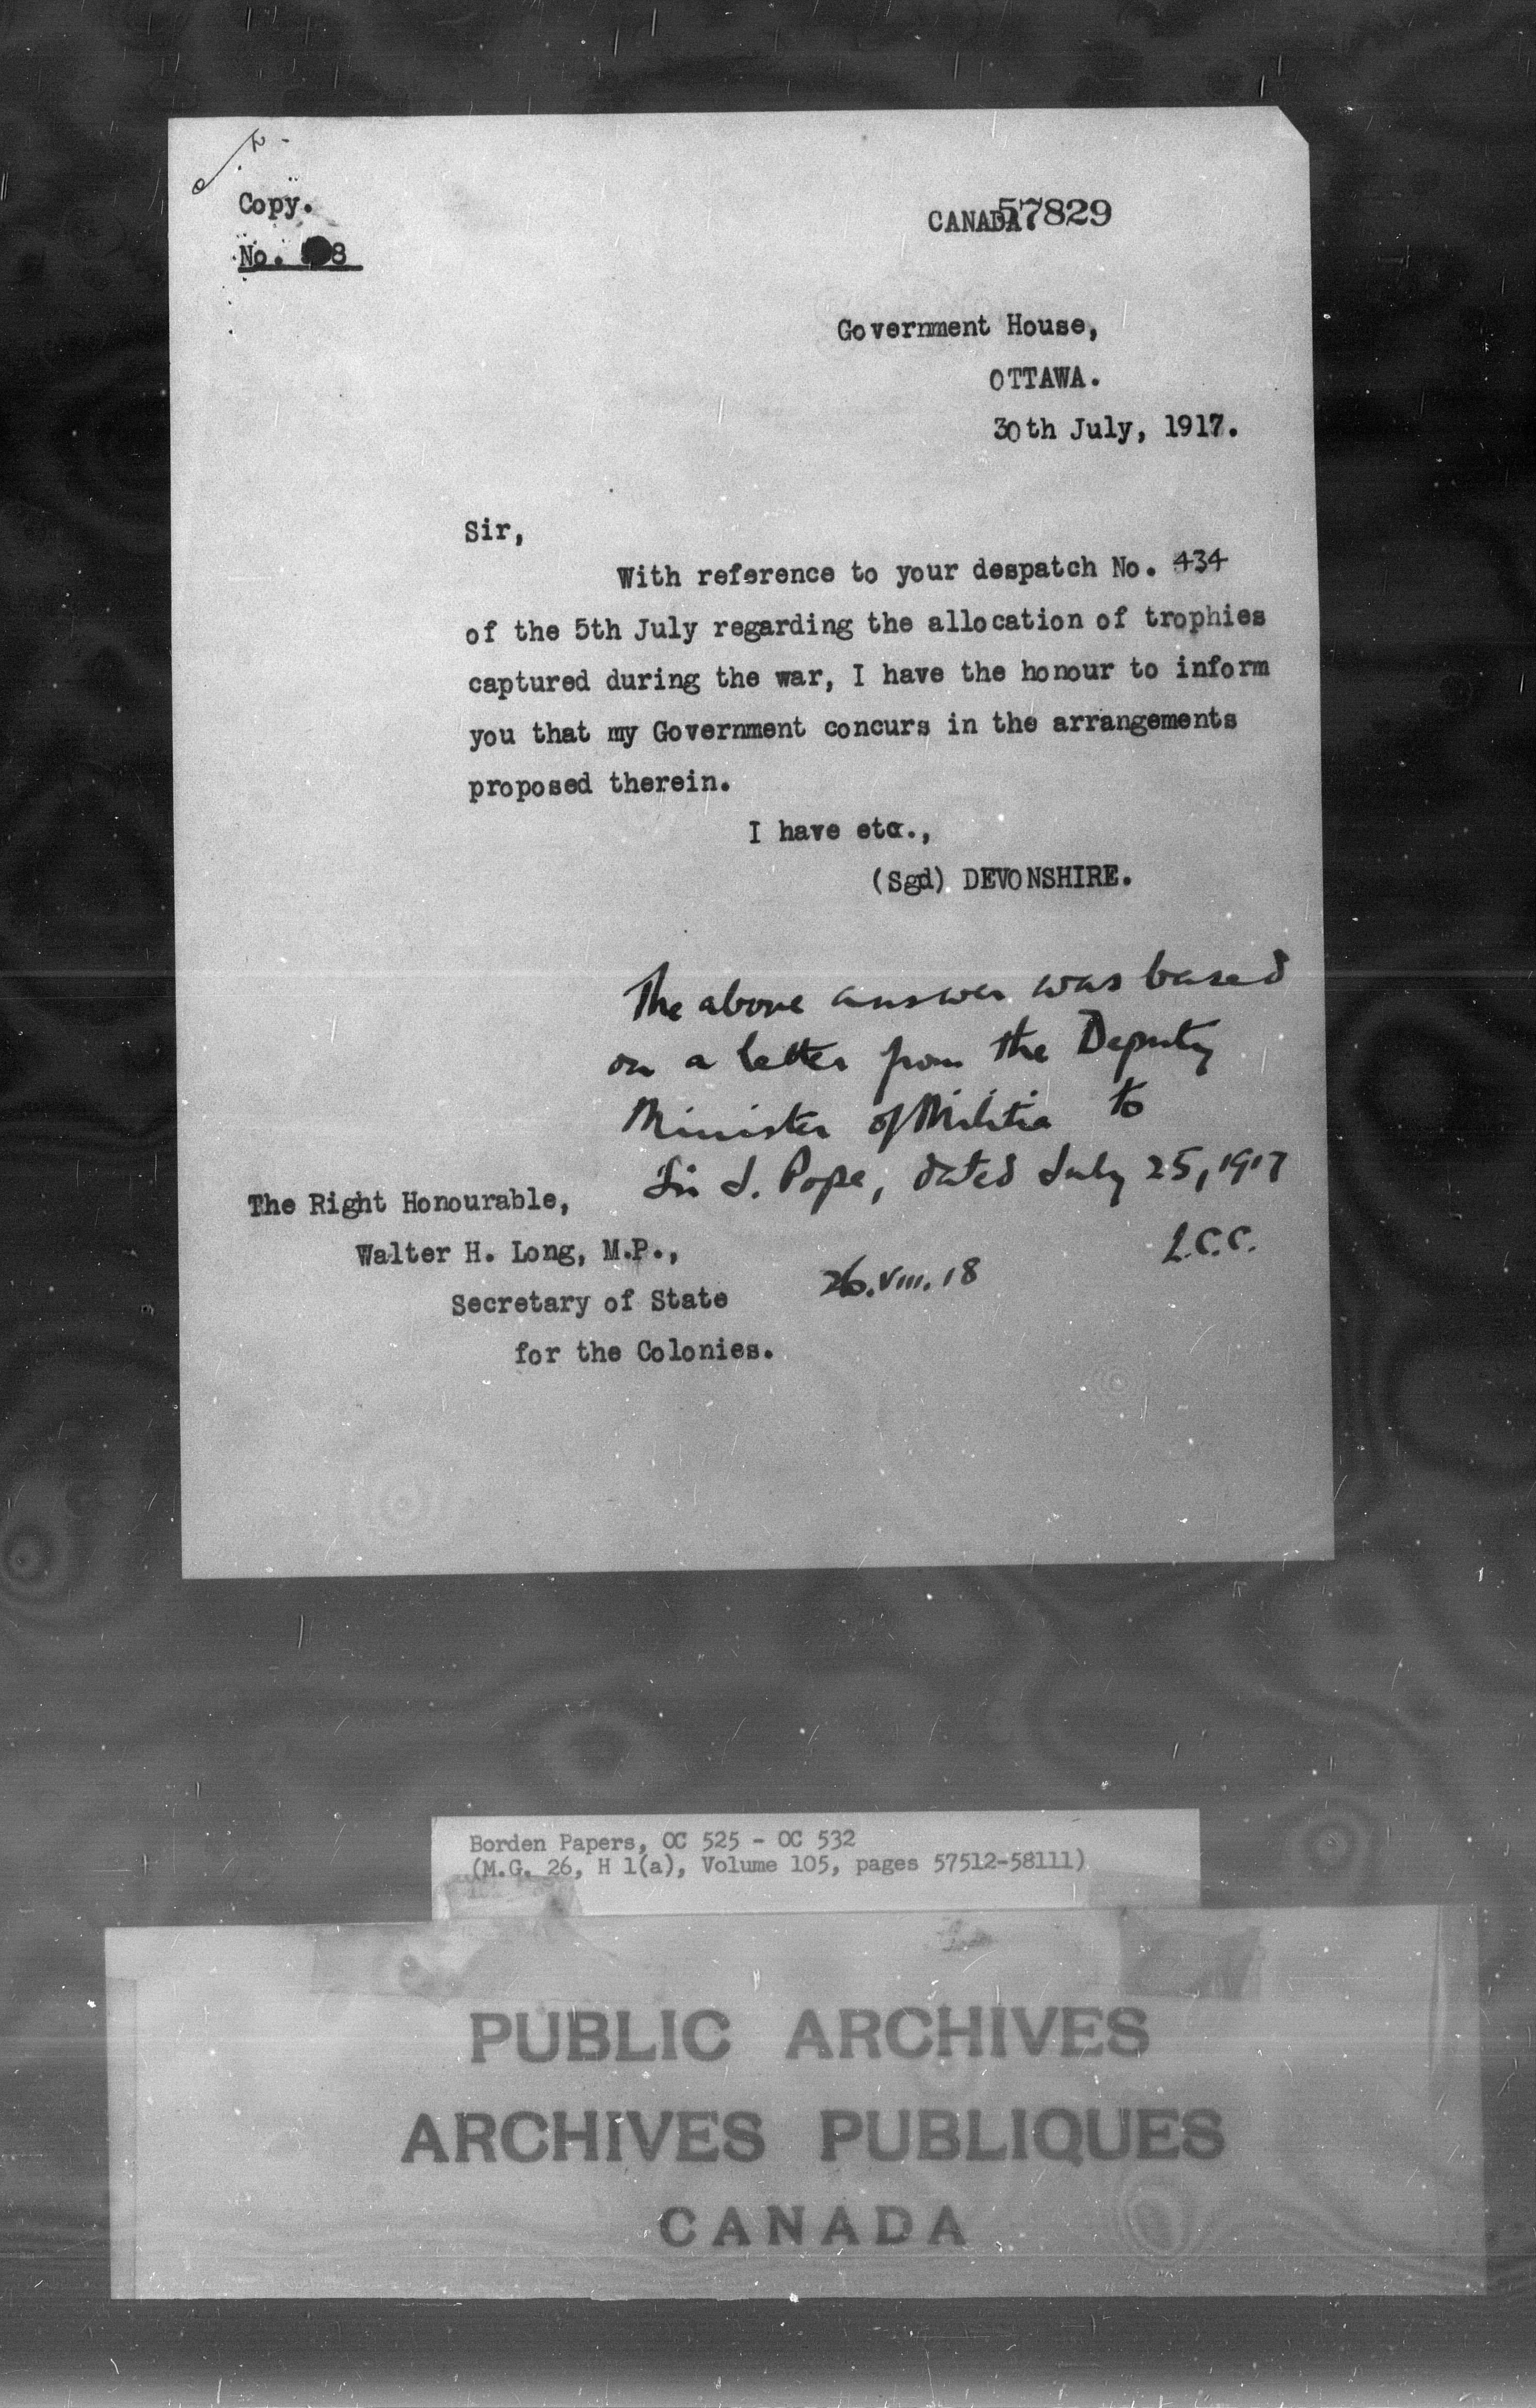 Copy.
No. 8
CANADA
57829
Government House,
OTTAWA.
30th July, 1917.
Sir,
With reference to your despatch No. 434
of the 5th July regarding the allocation of trophies
captured during the war, I have the honour to inform
you that my Government concurs in the arrangements
proposed therein.
I have etc.,
(Sgd) DEVONSHIRE.
The above answer was based
on a letter from the Deputy
Minister of Militia to
Sir J. Pope, dated July 25, 1917
L.C.C.
26.VIII.18
The Right Honourable,
Walter H. Long, M.P.,
Secretary of State
for the Colonies.
Borden Papers, OC 525 - OC 532
(M.G. 26, H 1(a), Volume 105, pages 57512-58111)
PUBLIC ARCHIVES
ARCHIVES PUBLIQUES
CANADA